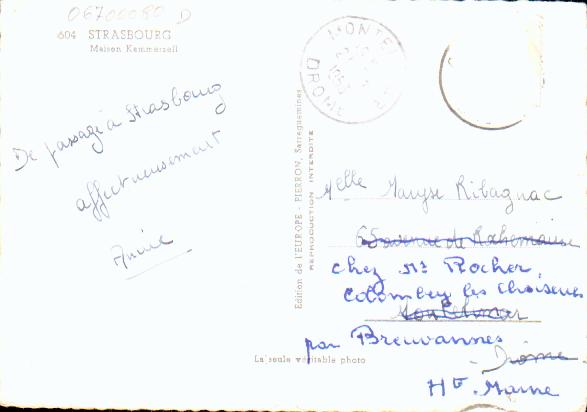 06700080 D
604 STRASBOURG
Maison Kammerzell
De passage à Strasbourg
affectueusement
Annie
MONTELIMAR
DROME
Edition de l'EUROPE - PIERRON, Sarreguemines
REPRODUCTION INTERDITE
Melle Maryse Ribagnac
65 avenue de Rochemaure
chez Mr Rocher,
Colombey les Choiseul
Montelimar
par Breuvannes
Drôme
Hte Marne
La seule véritable photo